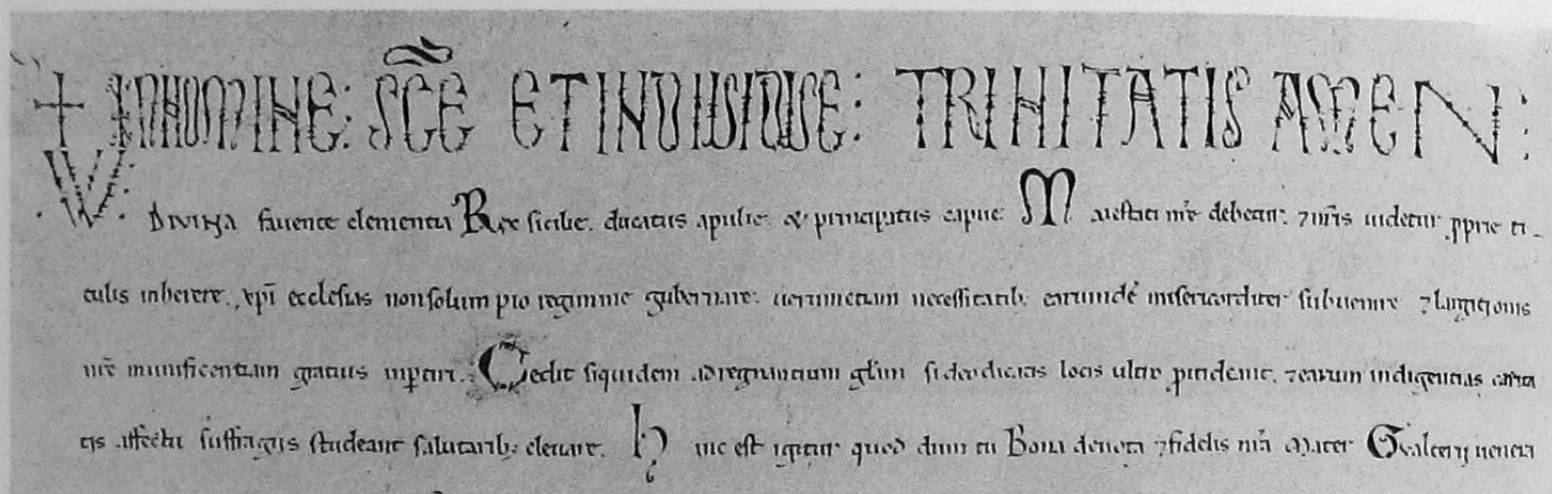 + IN NOMINE: SCE ET INDIVISIDUE: TRINITATIS AMEN:
.W. Divina favente clementia Rex sicilie. ducatus apulie. & principatus capue. Maiestati nre debetur: 7 nris uidetur pprie ti-
tulis inherere. xpi ecclesias non solum pio regimine gubernare: uerumetiam necessitatib; earumdē misericorditer subuenire 7 largitionis
nre munificentiam gratius impertiri. Cedit siquidem ad regnantium gliam si deo dicatis locis ultro prouideant. 7 earum indigentias
tis affectu suffragiis studeant salutarib; eleuare. hinc est igitur quod dum tu Bona deuota 7 fidelis nra Mater Gvalterii